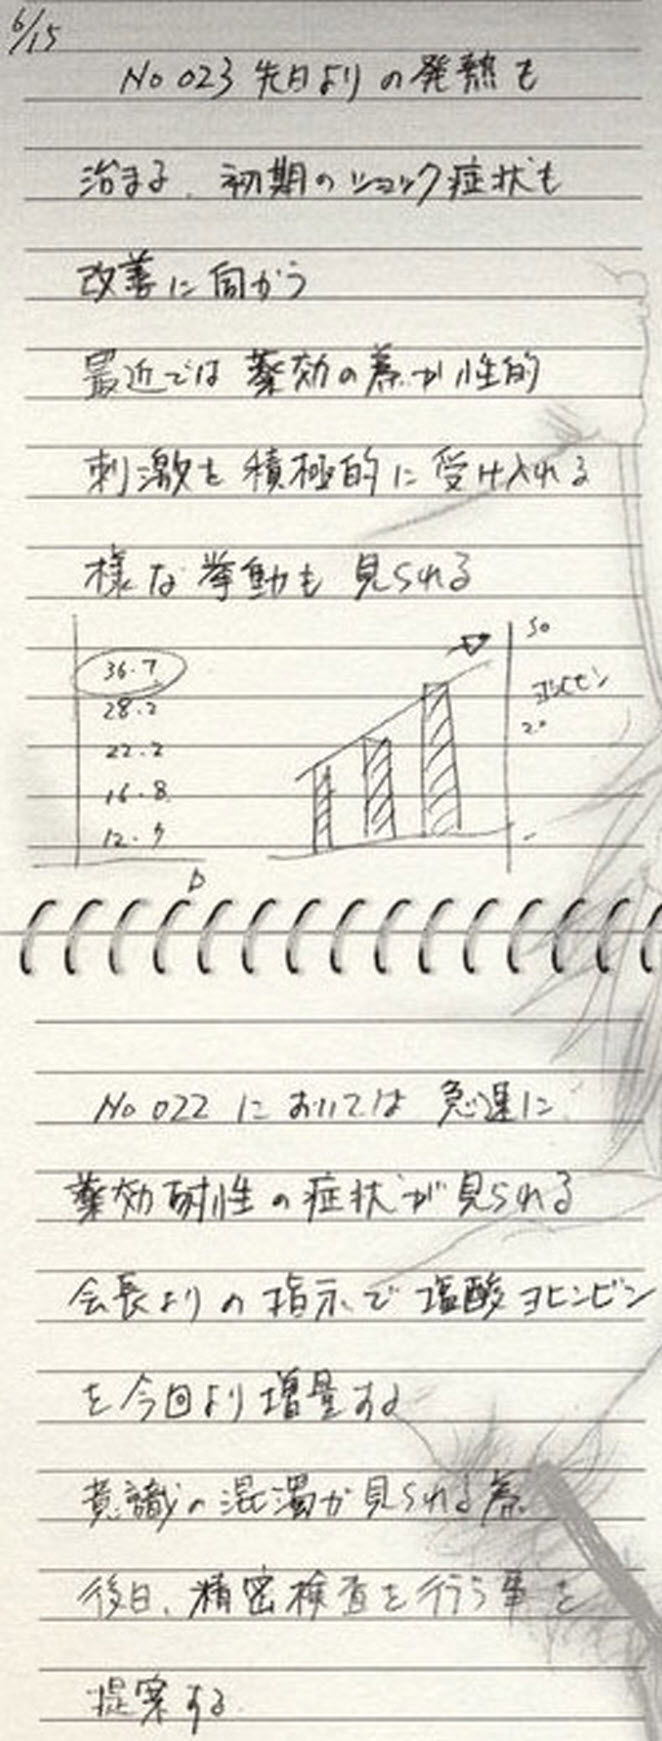 6/15
No 023 先日よりの発熱も
治まる、初期のショック症状も
改善に向かう
最近では薬効の為か性的
刺激を積極的に受け入れる
様な挙動も見られる
36.7
28.2
22.2
16.8
12.9
50
ヨヒンビン
20
No 022 においては急速に
薬効耐性の症状が見られる
会長よりの指示で塩酸ヨヒンビン
を今回より増量する
意識の混濁が見られる為
後日、精密検査を行う事を
提案する